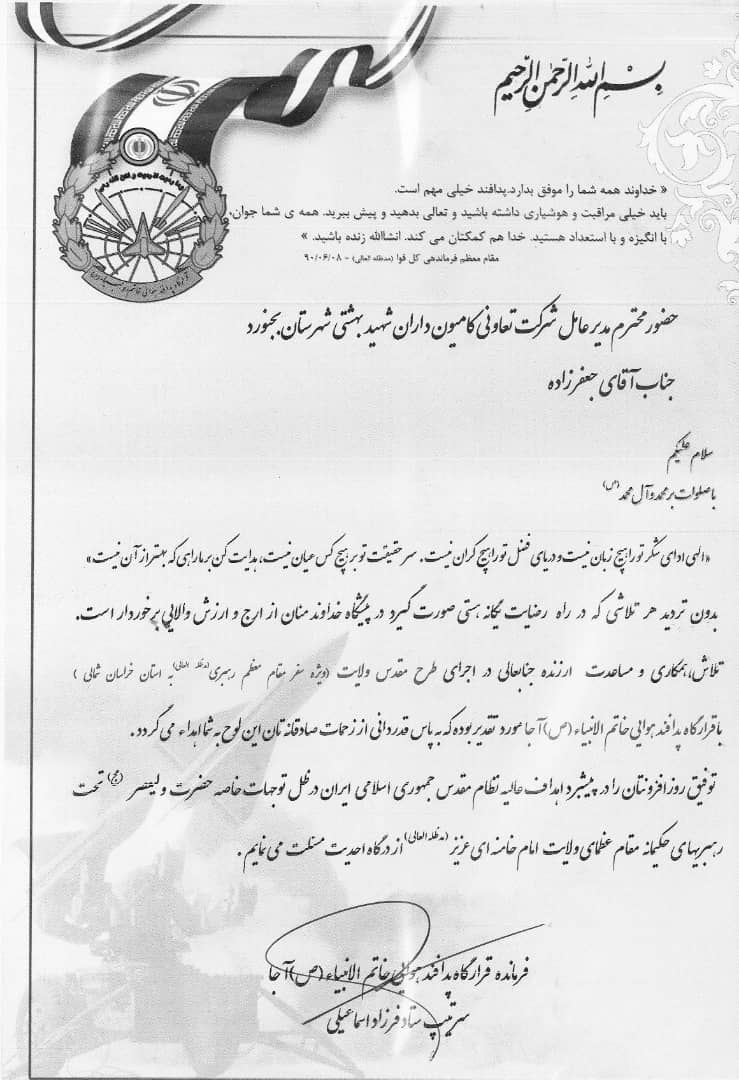 بسم الله الرحمن الرحیم
« خداوند همه شما را موفق بدارد.پدافند خیلی مهم است.
باید خیلی مراقبت و هوشیاری داشته باشید و تعالی بدهید و پیش ببرید. همه ی شما جوان،
با انگیزه و با استعداد هستید. خدا هم کمکتان می کند. انشاالله زنده باشید. »
مقام معظم فرماندهی کل قوا (مدظله العالی) - ۹۰/۰۶/۰۸
حضور محترم مدیر عامل شرکت تعاونی کامیون داران شهید بهشتی شهرستان بجنورد
جناب آقای جعفرزاده
سلام علیکم
با صلوات بر محمد و آل محمد (ص)
«الهی ادای شکر تو را هیچ زبان نیست و دریای فضل تو را هیچ کران نیست، سر حقیقت تو بر هیچ کس عیان نیست، هدایت کن بر ما راهی که بهتر از آن نیست»
بدون تردید هر تلاشی که در راه رضایت یگانه هستی صورت گیرد در پیشگاه خداوند منان از ارج و ارزش والایی برخوردار است.
تلاش،همکاری و مساعدت ارزنده جنابعالی در اجرای طرح مقدس ولایت (ویژه سفر مقام معظم رهبری(مدظله العالی) به استان خراسان شمالی )
با قرارگاه پدافند هوایی خاتم الانبیاء (ص) آجا مورد تقدیر بوده که به پاس قدردانی از زحمات صادقانه تان این لوح به شما اهداء می گردد.
توفیق روز افزونتان را در پیشبرد اهداف عالیه نظام مقدس جمهوری اسلامی ایران در ظل توجهات خاصه حضرت ولیعصر (عج) تحت
رهبریهای حکیمانه مقام عظمای ولایت امام خامنه ای عزیز (مدظله العالی) از درگاه احدیت مسئلت می نمایم.
فرمانده قرارگاه پدافند هوایی خاتم الانبیاء (ص) آجا
سرتیپ ستاد فرزاد اسماعیلی